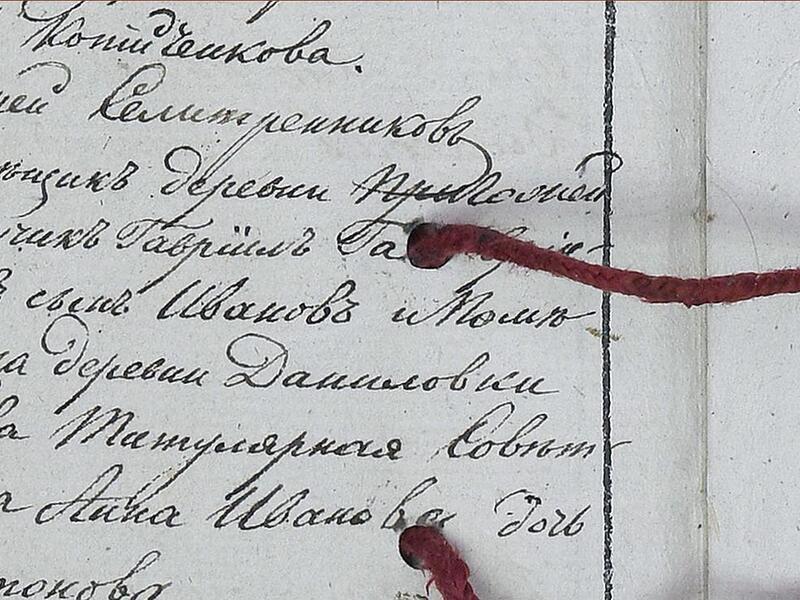 Котдченкова.
ней Селитренниковъ
ощикъ деревни
чикъ Гавріилъ
ъ сынъ Ивановъ
на деревни Даниловки
ва Титулярная Совѣт-
а Анна Иванова дочь
тонова